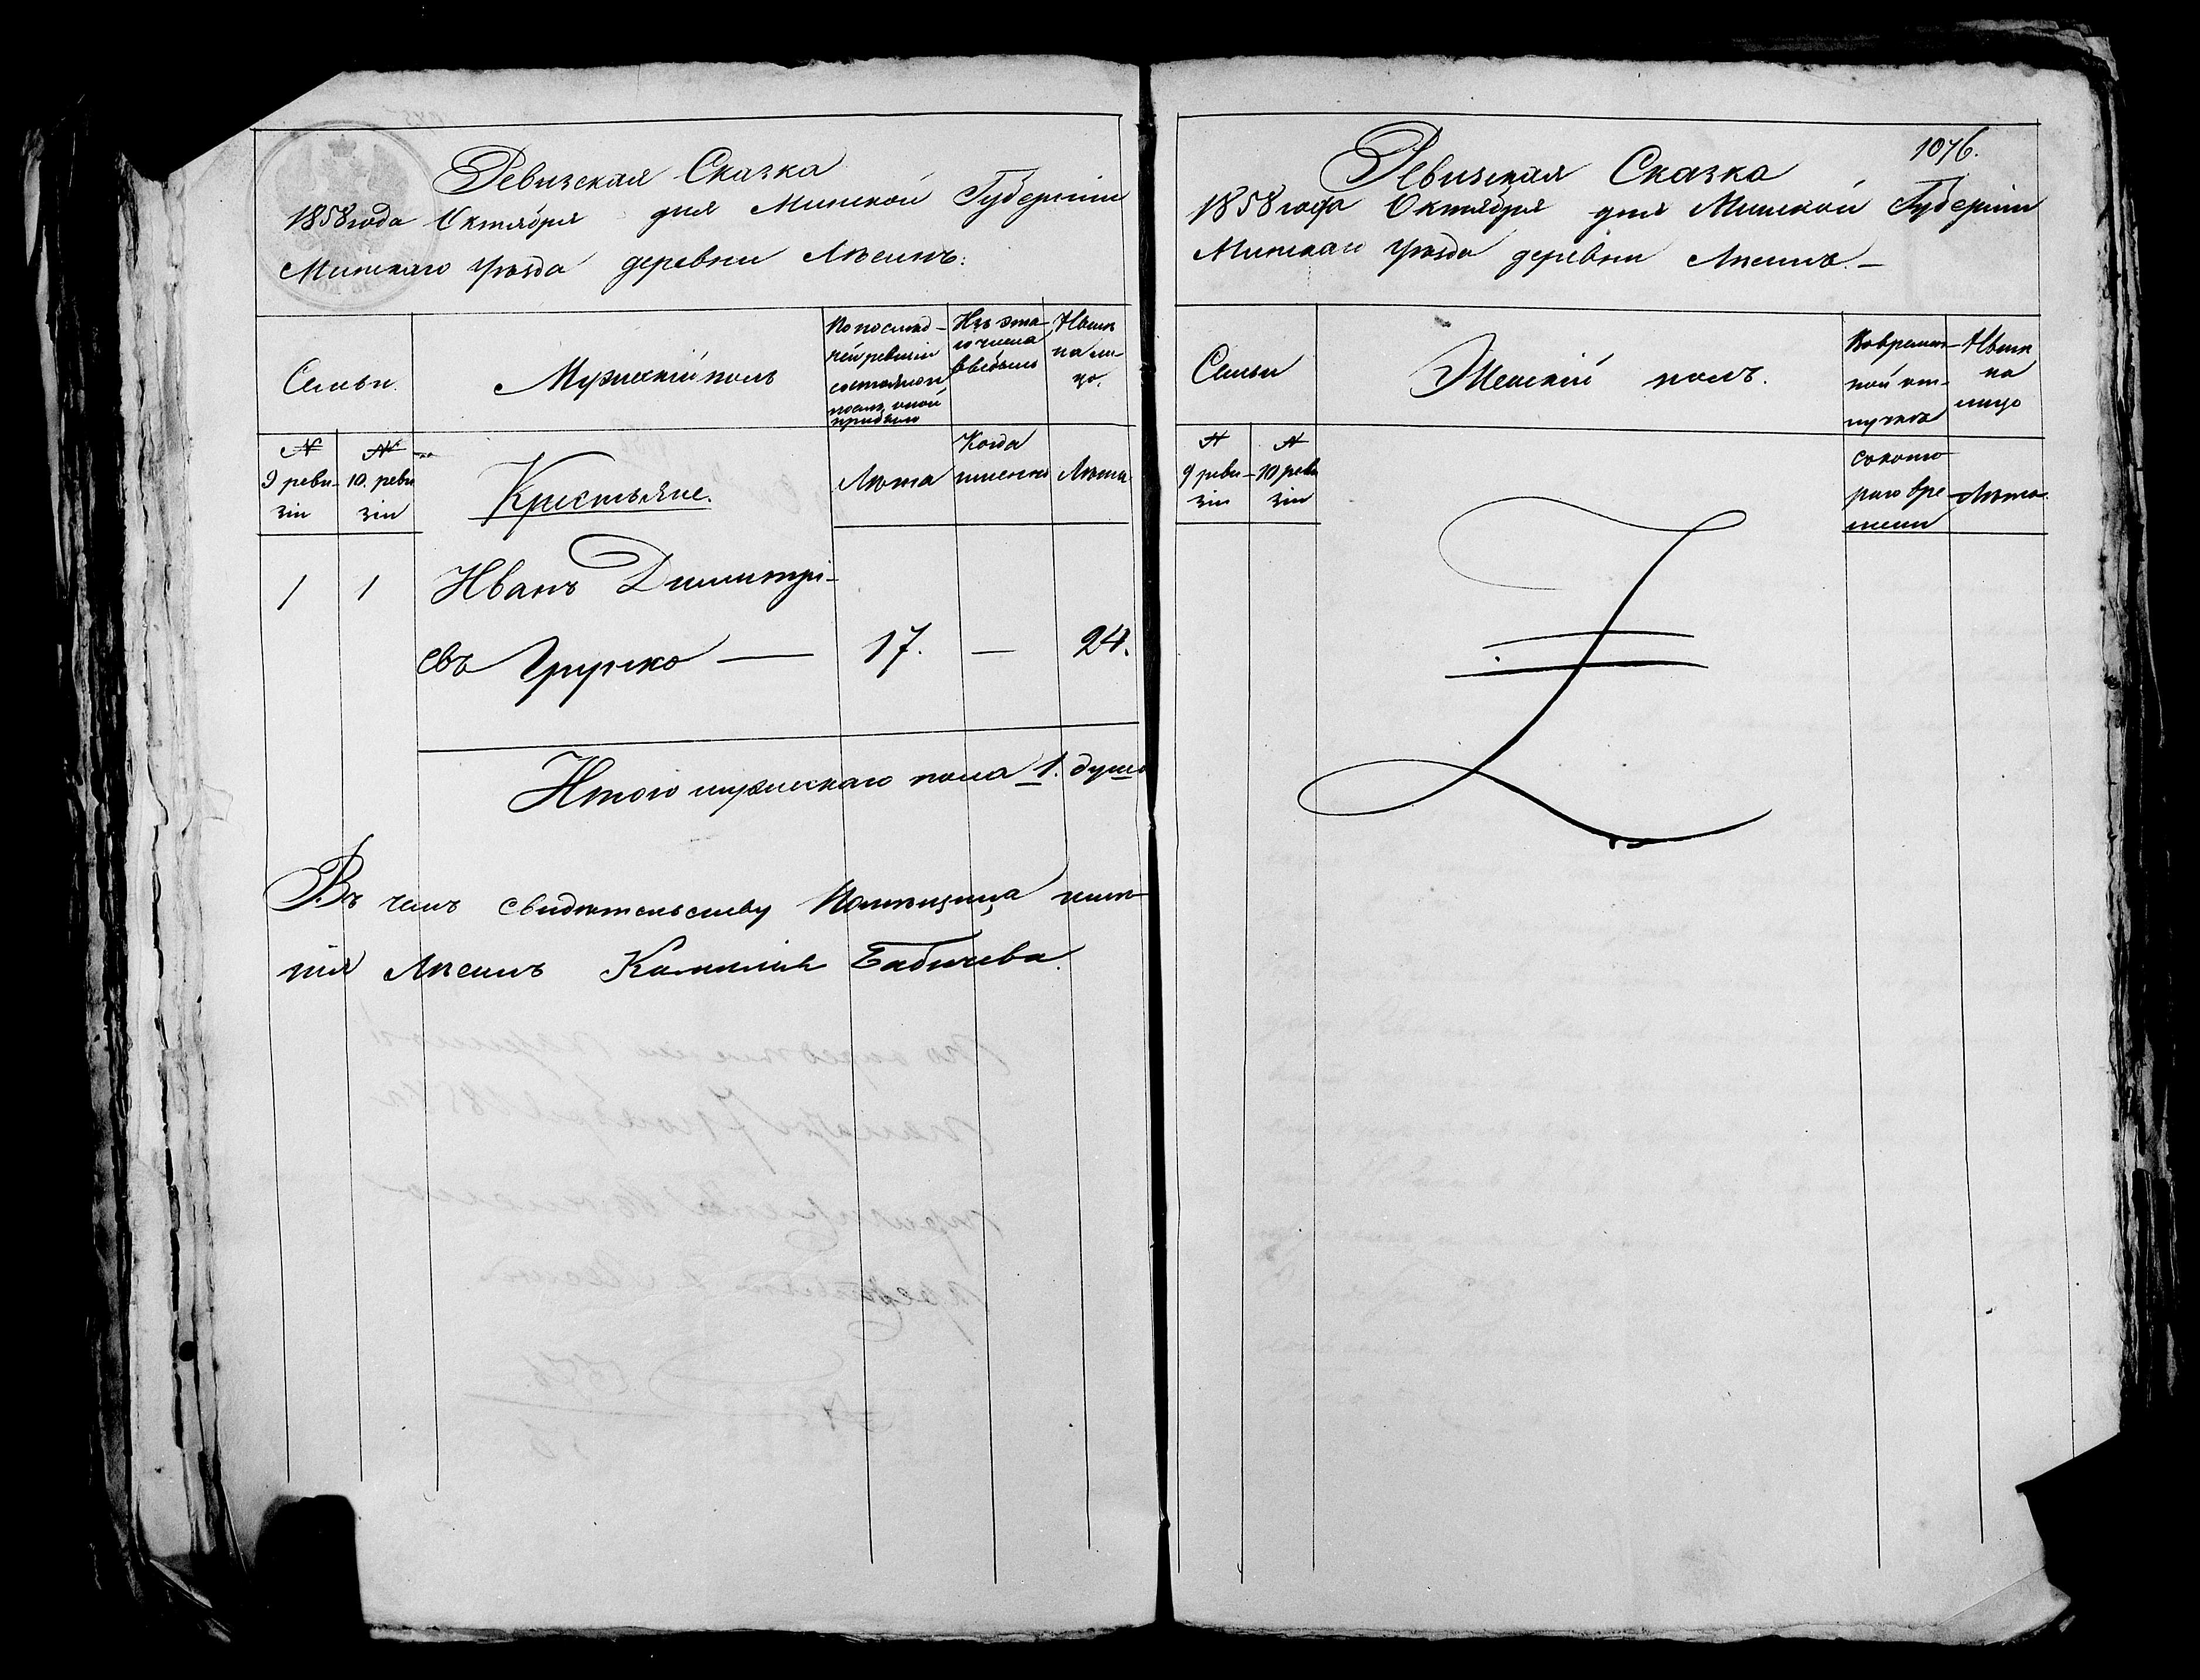 Ревизская Сказка
1858 года Октября дня Минской Губерніи
Минскаго Уѣзда деревни Лѣсинъ.
Семьи.
Мужескій полъ
По послѣд-
ней ревизіи
состояло и
послѣ оной
прибыло
Изъ эта-
го числа
выбыло
Нынѣ
на ли-
цо.
№
9 реви-
зіи
№
10. реви
зіи
Крестьяне.
Лѣта
Когда
именно
Лѣта
1 1 Иванъ Димитрі-
евъ Грушко — 17. — 24.
Итого мужескаго пола 1. душа
Въ чемъ свидѣтельствую Помѣщица имѣ-
нія Лѣсинъ Камилія Бабичева.
1076.
Ревизская Сказка
1858 года Октября дня Минской Губерніи
Минскаго Уѣзда деревни Лѣсинъ. —
Семьи
Женскій полъ.
Во времен-
ной от-
лучкѣ
Нынѣ
на
лицо
№
9 реви-
зіи
№
10 реви
зіи
с котo
раго вре-
мени
Лѣта.